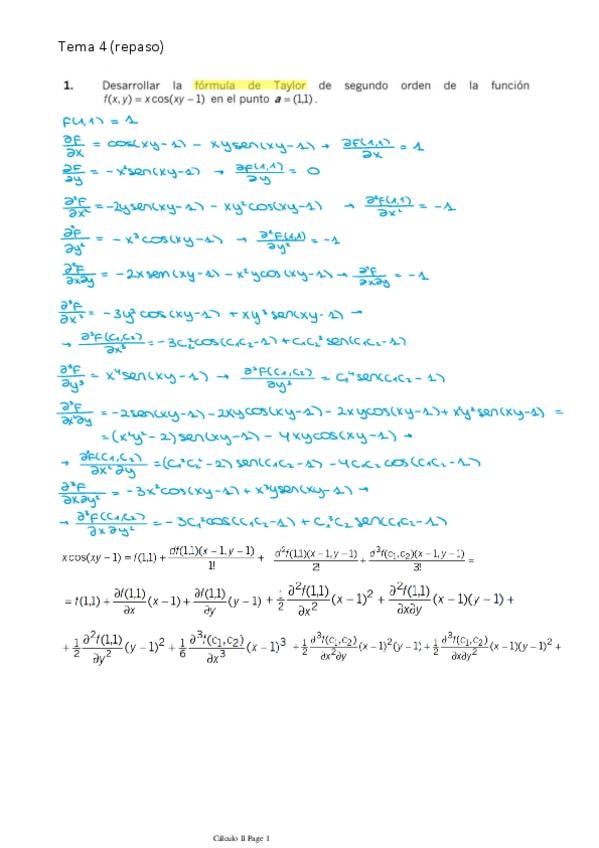 Tema 4 (repaso)
1. Desarrollar la fórmula de Taylor de segundo orden de la función
f(x, y) = x cos(xy − 1) en el punto a = (1,1).
F(1,1) = 1
∂F/∂x = cos(xy−1) − xysen(xy−1) → ∂F(1,1)/∂x = 1
∂F/∂y = −x²sen(xy−1) → ∂F(1,1)/∂y = 0
∂²F/∂x² = −2ysen(xy−1) − xy²cos(xy−1) → ∂²F(1,1)/∂x² = −1
∂²F/∂y² = −x³cos(xy−1) → ∂²F(1,1)/∂y² = −1
∂²F/∂x∂y = −2xsen(xy−1) − x²ycos(xy−1) → ∂²F/∂x∂y = −1
∂³F/∂x³ = −3y²cos(xy−1) + xy³sen(xy−1) →
→ ∂³F(C₁,C₂)/∂x³ = −3C₂²cos(C₁C₂−1) + C₁C₂³sen(C₁C₂−1)
∂³F/∂y³ = x⁴sen(xy−1) → ∂³F(C₁,C₂)/∂y³ = C₁⁴sen(C₁C₂−1)
∂³F/∂x²∂y = −2sen(xy−1) − 2xycos(xy−1) − 2xycos(xy−1) + x²y²sen(xy−1) =
= (x²y² − 2)sen(xy−1) − 4xycos(xy−1) →
→ ∂³F(C₁,C₂)/∂x²∂y = (C₁²C₂² − 2)sen(C₁C₂−1) − 4C₁C₂cos(C₁C₂−1)
∂³F/∂x∂y² = −3x²cos(xy−1) + x³ysen(xy−1) →
→ ∂³F(C₁,C₂)/∂x∂y² = −3C₁²cos(C₁C₂−1) + C₁³C₂sen(C₁C₂−1)
x cos(xy − 1) = f(1,1) + df(1,1)(x − 1, y − 1)/1! + d²f(1,1)(x − 1, y − 1)/2! + d³f(c₁,c₂)(x − 1, y − 1)/3! =
= f(1,1) + ∂f(1,1)/∂x (x − 1) + ∂f(1,1)/∂y (y − 1) + 1/2 ∂²f(1,1)/∂x² (x − 1)² + ∂²f(1,1)/∂x∂y (x − 1)(y − 1) +
+ 1/2 ∂²f(1,1)/∂y² (y − 1)² + 1/6 ∂³f(c₁,c₂)/∂x³ (x − 1)³ + 1/2 ∂³f(c₁,c₂)/∂x²∂y (x − 1)²(y − 1) + 1/2 ∂³f(c₁,c₂)/∂x∂y² (x − 1)(y − 1)² +
Cálculo II Page 1